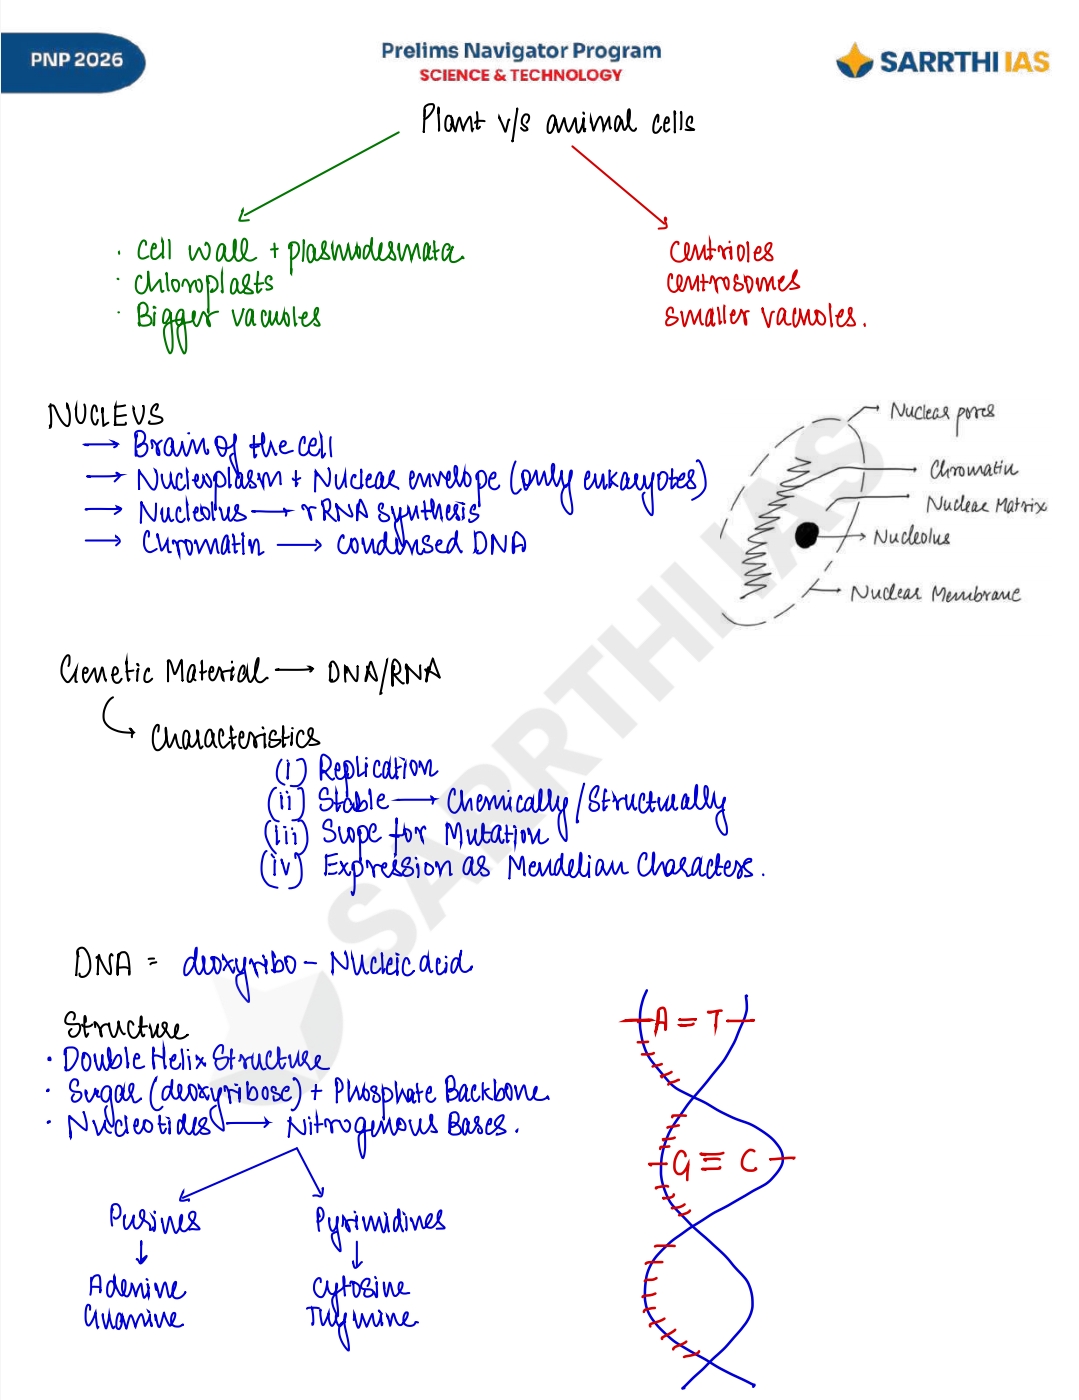 PNP 2026
Prelims Navigator Program
SCIENCE & TECHNOLOGY
SARRTHI IAS
Plant v/s animal cells
· Cell wall + plasmodesmata
· Chloroplasts
· Bigger vacuoles
Centrioles
Centrosomes
Smaller vacuoles.
NUCLEUS
→ Brain of the cell
→ Nucleoplasm + Nuclear envelope (only eukaryotes)
→ Nucleolus → rRNA synthesis
→ Chromatin → condensed DNA
Nuclear pores
Chromatin
Nuclear Matrix
Nucleolus
Nuclear Membrane
Genetic Material → DNA/RNA
Characteristics
(i) Replication
(ii) Stable → Chemically/Structurally
(iii) Scope for Mutation
(iv) Expression as Mendelian Characters.
SARRTHI IAS
DNA = deoxyribo - Nucleic acid
Structure
· Double Helix Structure
· Sugar (deoxyribose) + Phosphate Backbone
· Nucleotides → Nitrogenous Bases.
Purines
Pyrimidines
Adenine
Guanine
Cytosine
Thymine
A = T
G ≡ C